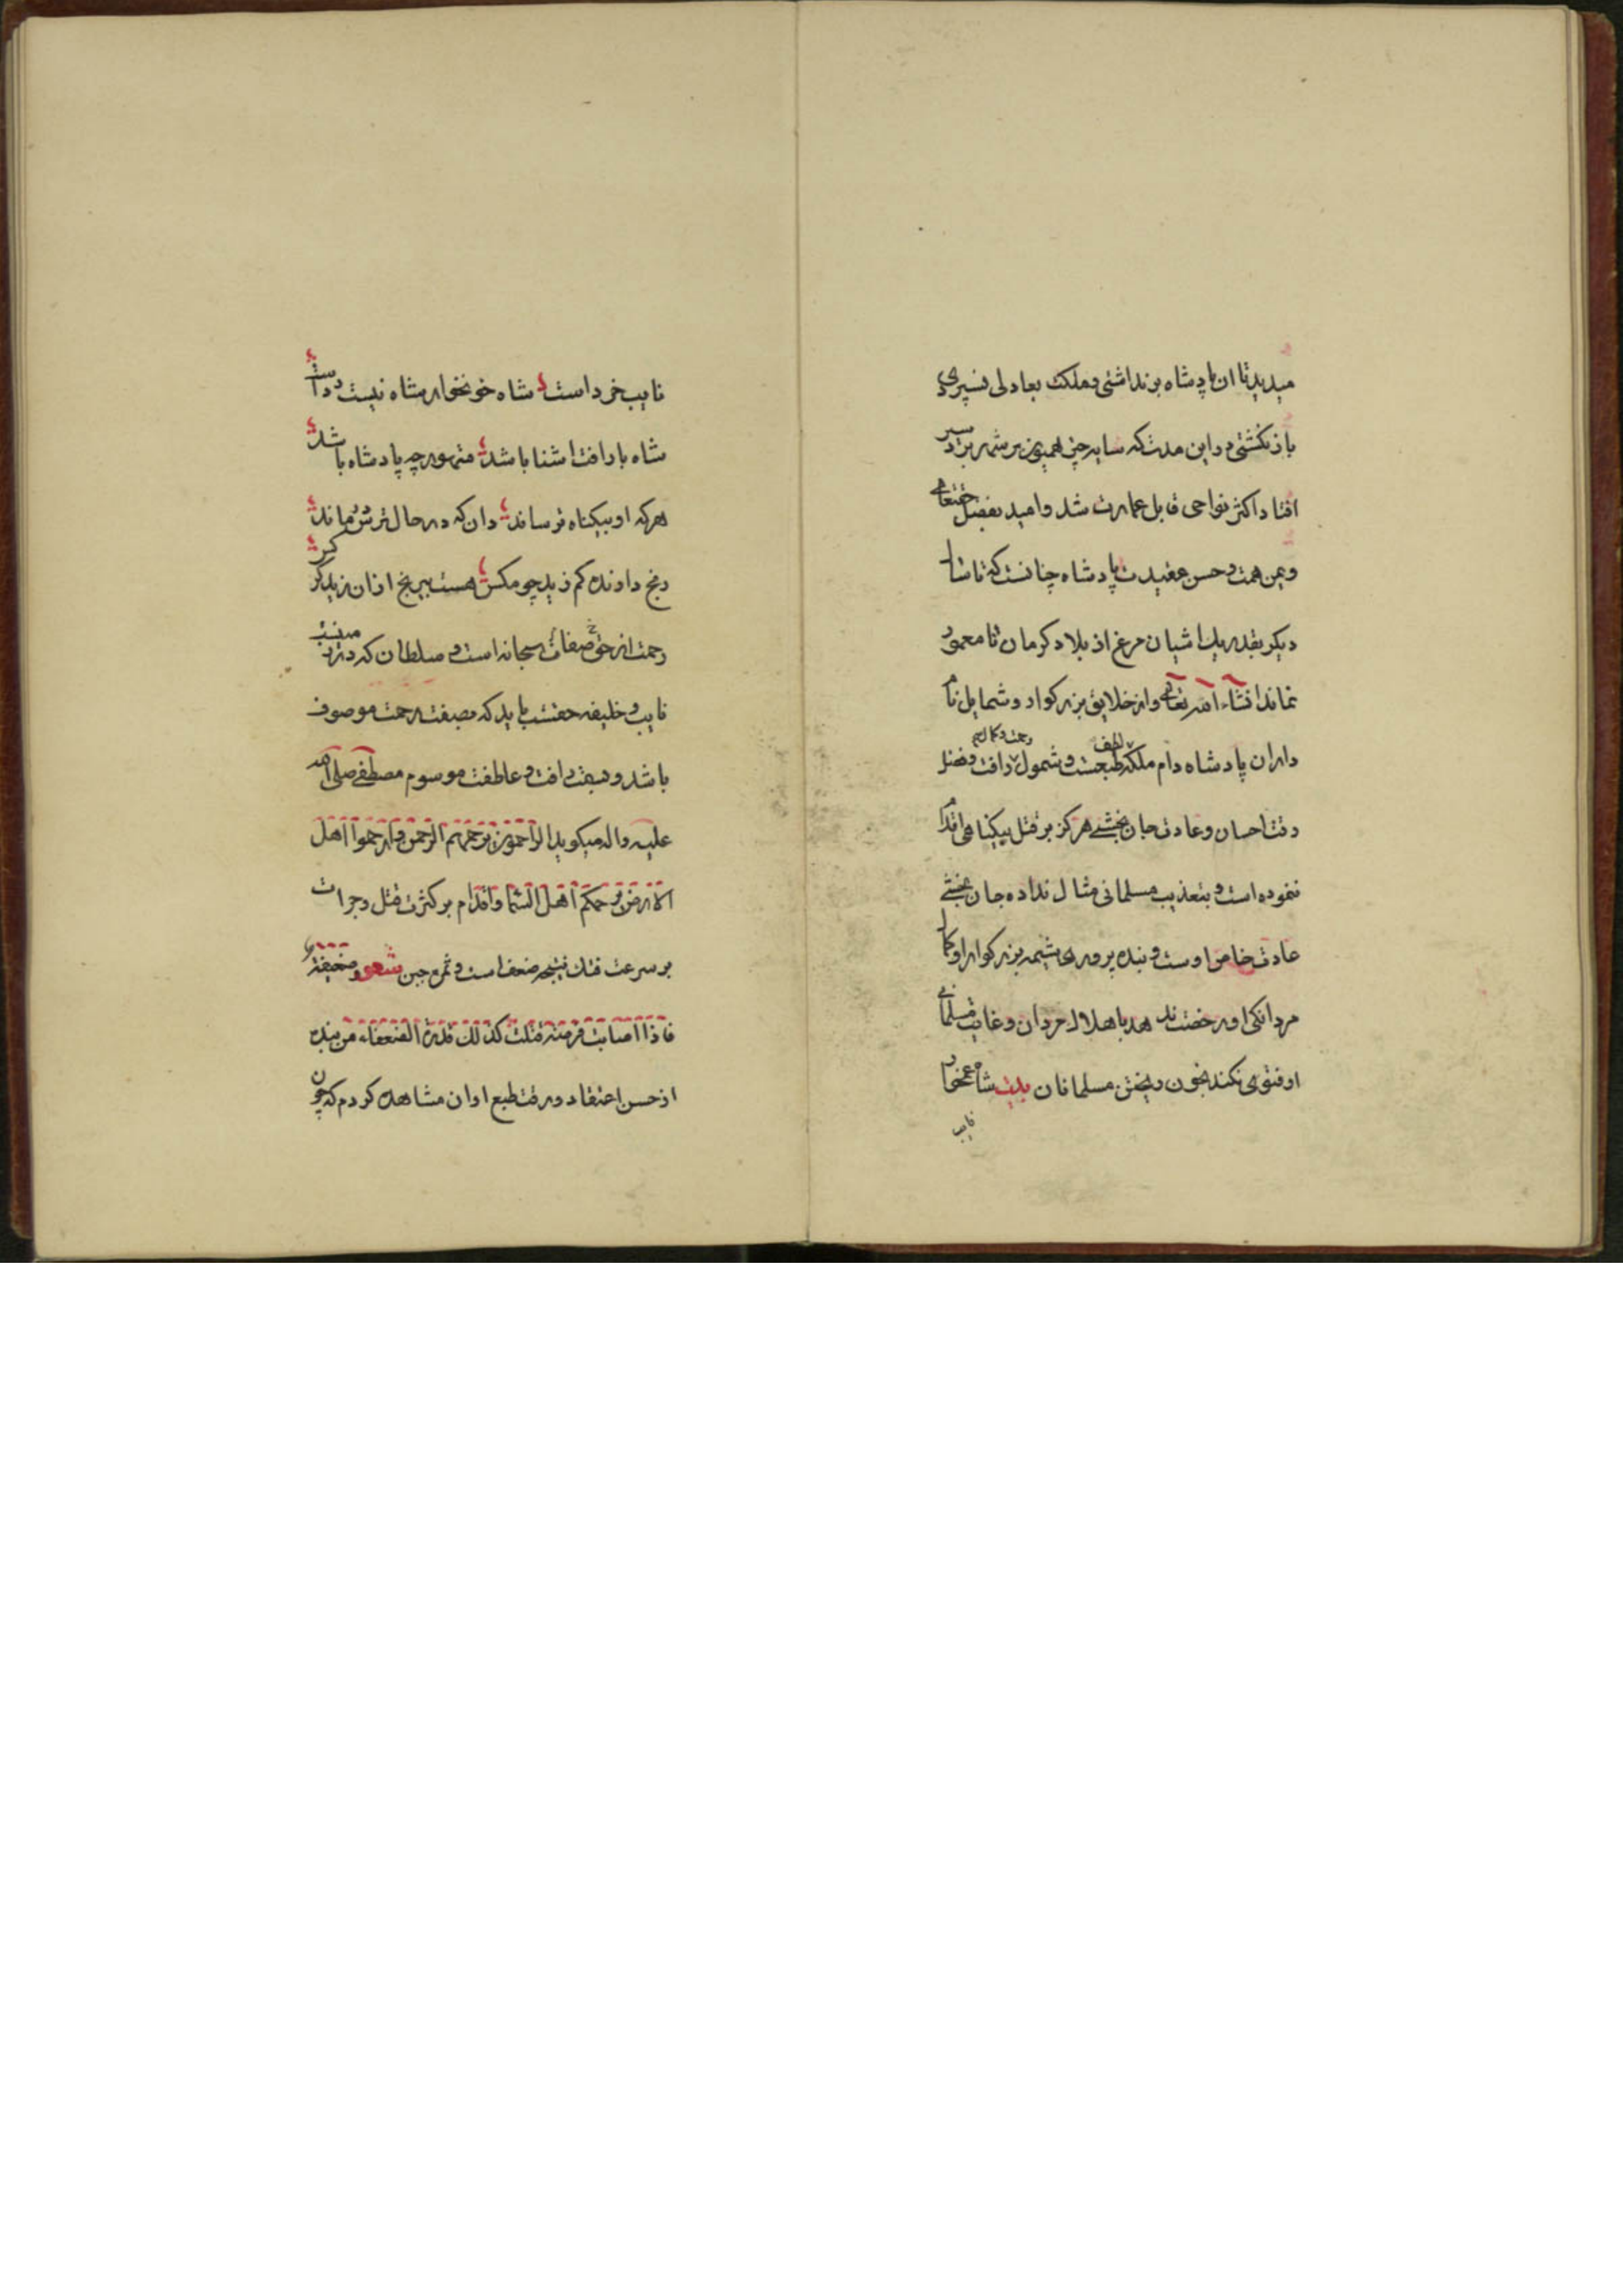 میدیدتا ان پادشاه برنداشتی وملکت بعادلی نسپردی
باز نکشتی و در این مدت که سایه چتر همیون بر شهر بردسیر
افتاد اکثر نواحی قابل عمارت شد وامید بفضل حقتعالی
ویمن همت وحسن عقیدت پادشاه چنانست که تا سال
دیکر بقدر یک اشیان مرغ از بلاد کرمان نا معمور
نماند انشاء الله تعالی واز خلایق بزرکوار و شمایل نا
داران پادشاه دام ملکه لطف طبعست و شمول رافت رحمت و کمال وفضل
دقت احسان وعادت جان بخشی هرکز بر قتل بیکناهی اقدام
ننموده است و بتعذیب مسلمانی مثال نداده جان بخشی
عادت خاص اوست و بنده پروری شیمه بزرکوار او کمال
مردانکی او رخصت ندهد باهلاک مردان وغایت مسلمانی
او فتوی نکند بخون ریختن مسلمانان بیت شاه غمخوار
نایب
نایب خرد است شاه خونخوار شاه نیست دد است
شاه با رافت اشنا باشد متهور چه پادشاه باشد
هرکه او بیکناه ترساند دان که در حال ترس ترس ماند
رنج دارنده کم زید چو مکس هست بیرنج ازان زید کرکس
رحمت از صفات حق سبحانه است و سلطان که در زمین
نایب و خلیفه حقست باید که بصفت رحمت موصوف
باشد و بسمت رافت و عاطفت موسوم مصطفی صلی الله
علیه واله میکوید الراحمون یرحمهم الرحمن ارحموا اهل
الارض یرحمکم اهل السما واقدام بر کثرت قتل وجرات
بر سرعت فتک نتیجه ضعف است و ثمره جبن شعر وضعیفة
فاذا اصابت فرصة قتلت کذلک قدرة الضعفاء من بنده
از حسن اعتقاد ورقت طبع او ان مشاهده کردم که چون